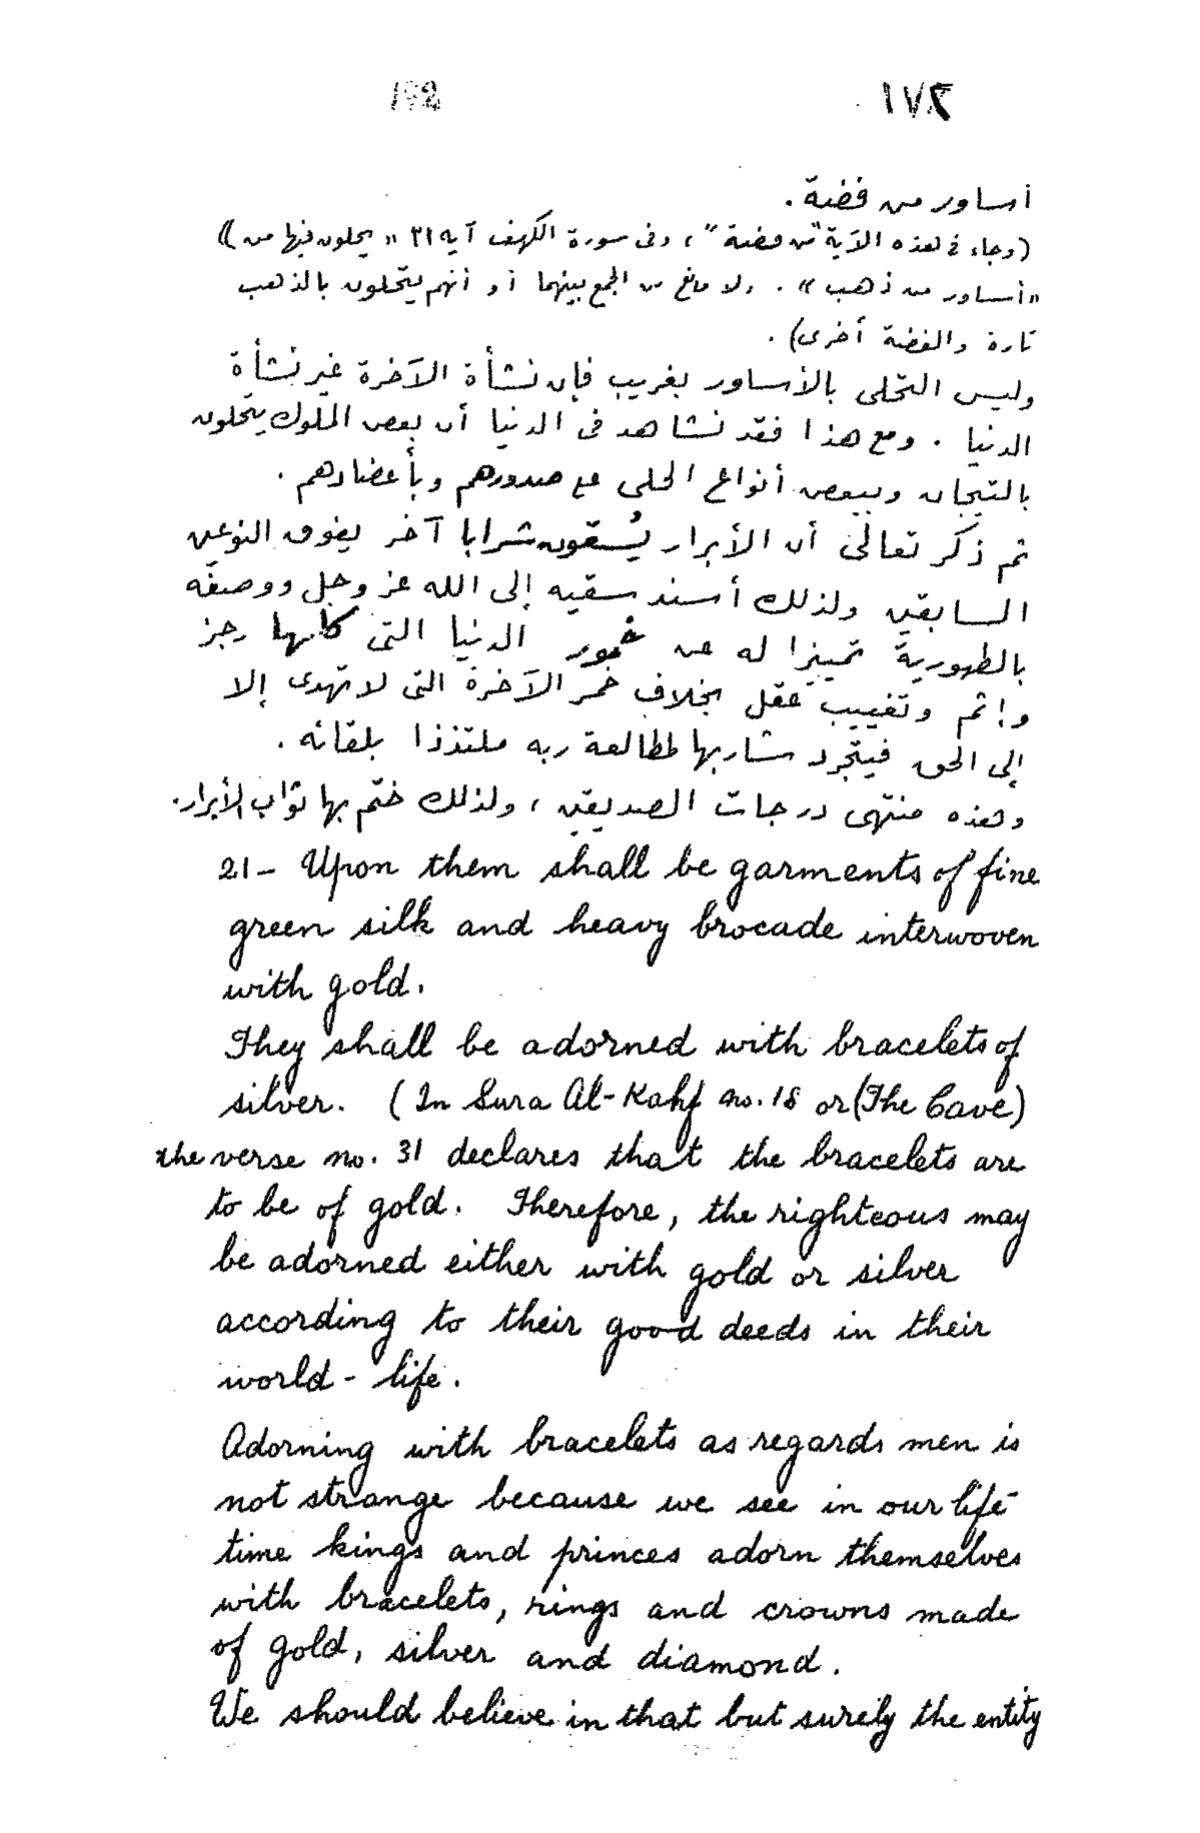 ١٧٢
أساور من فضة .
(وجاء فى هذه الآية "من فضة" ، وفى سورة الكهف آية ٣١ « يحلون فيها من ))
« أساور من ذهب » . ولا مانع من الجمع بينهما أو أنهم يتحلون بالذهب
تارة والفضة أخرى) .
وليس التحلى بالأساور بغريب فإن نشأة الآخرة غير نشأة
الدنيا . ومع هذا فقد نشاهد فى الدنيا أن بعض الملوك يتحلون
بالتيجان وببعض أنواع الحلى على صدورهم وبأعضادهم .
ثم ذكر تعالى أن الأبرار يُسقون شرابا آخر يفوق النوعين
السابقين ولذلك أسند سقيه إلى الله عز وجل ووصفه
بالطهورية تمييزا له عن خمور الدنيا التى كلها رجز
وإثم وتغييب عقل بخلاف خمر الآخرة التى لا تهدى إلا
إلى الحق فيتجرد شاربها لمطالعة ربه ملتذذا بلقائه .
وهذه منتهى درجات الصديقين ، ولذلك ختم بها ثواب الأبرار.
21- Upon them shall be garments of fine
green silk and heavy brocade interwoven
with gold.
They shall be adorned with bracelets of
silver. (In Sura Al-Kahf no. 18 or (The Cave)
the verse no. 31 declares that the bracelets are
to be of gold. Therefore, the righteous may
be adorned either with gold or silver
according to their good deeds in their
world - life.
Adorning with bracelets as regards men is
not strange because we see in our life-
time kings and princes adorn themselves
with bracelets, rings and crowns made
of gold, silver and diamond.
We should believe in that but surely the entity